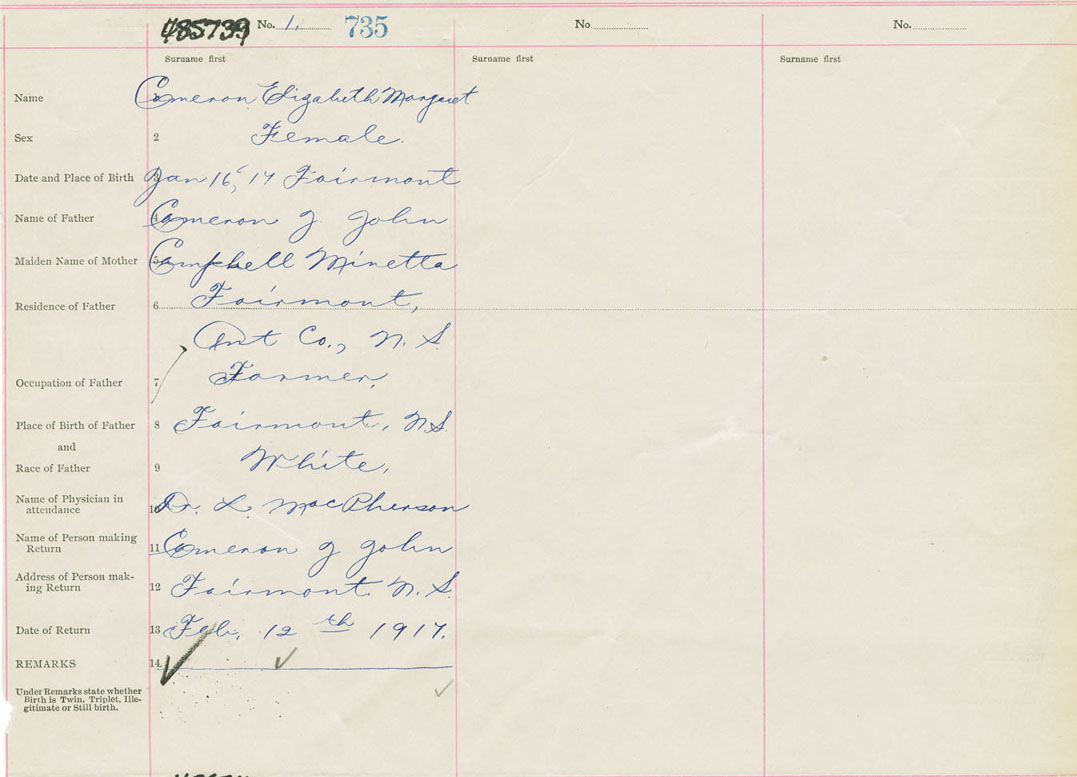 485739 No. 1. 735 No. No.
Surname first Surname first Surname first
Name 1 Cameron Elizabeth Margaret
Sex 2 Female.
Date and Place of Birth 3 Jan 16, 17 Fairmont
Name of Father 4 Cameron J. John
Maiden Name of Mother 5 Campbell Minetta
Residence of Father 6 Fairmont,
Ant Co., N. S.
Occupation of Father 7 Farmer,
Place of Birth of Father 8 Fairmont, N.S.
and
Race of Father 9 White,
Name of Physician in
attendance 10 Dr. L. MacPherson
Name of Person making
Return 11 Cameron J John
Address of Person mak-
ing Return 12 Fairmont N. S.
Date of Return 13 Feb, 12 th 1917.
REMARKS 14
Under Remarks state whether
Birth is Twin, Triplet, Ille-
gitimate or Still birth.